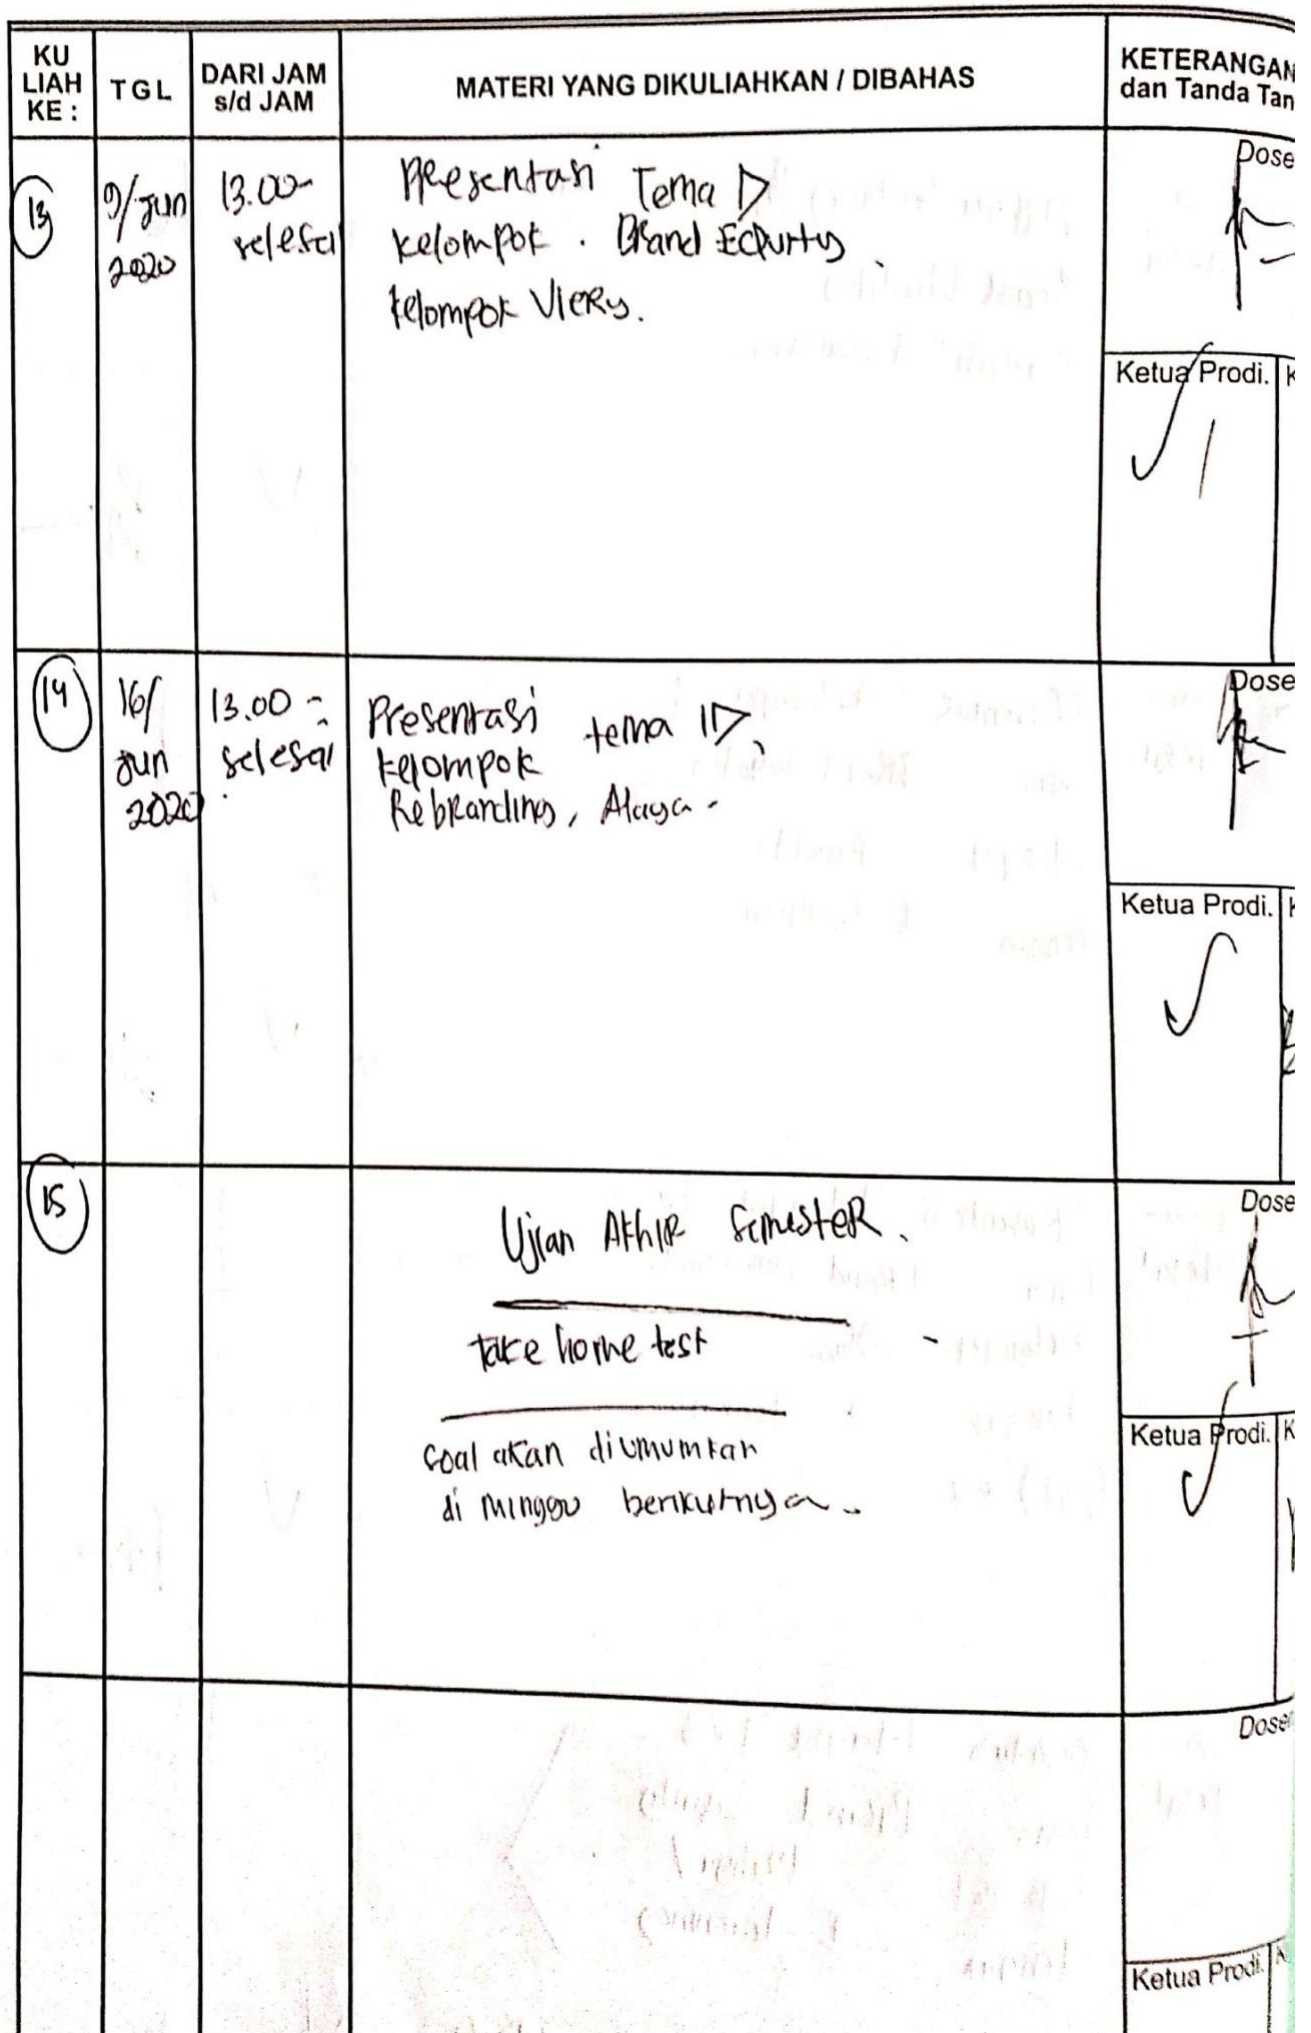 KU LIAH KE :
TGL
DARI JAM s/d JAM
MATERI YANG DIKULIAHKAN / DIBAHAS
KETERANGAN
dan Tanda Tan
13
9/Jun
2020
13.00-
selesai
Presentasi Tema
kelompok . Brand Equity
kelompok Viery.
Dose
Ketua Prodi.
14
16/
Jun
2020
13.00 -
selesai
Presentasi tema
kelompok
Rebranding, Alaya -
Dose
Ketua Prodi.
15
Ujian Akhir Semester.
take home test
Soal akan diumumkan
di minggu berikutnya.
Dose
Ketua Prodi.
Dosen
Ketua Prodi.